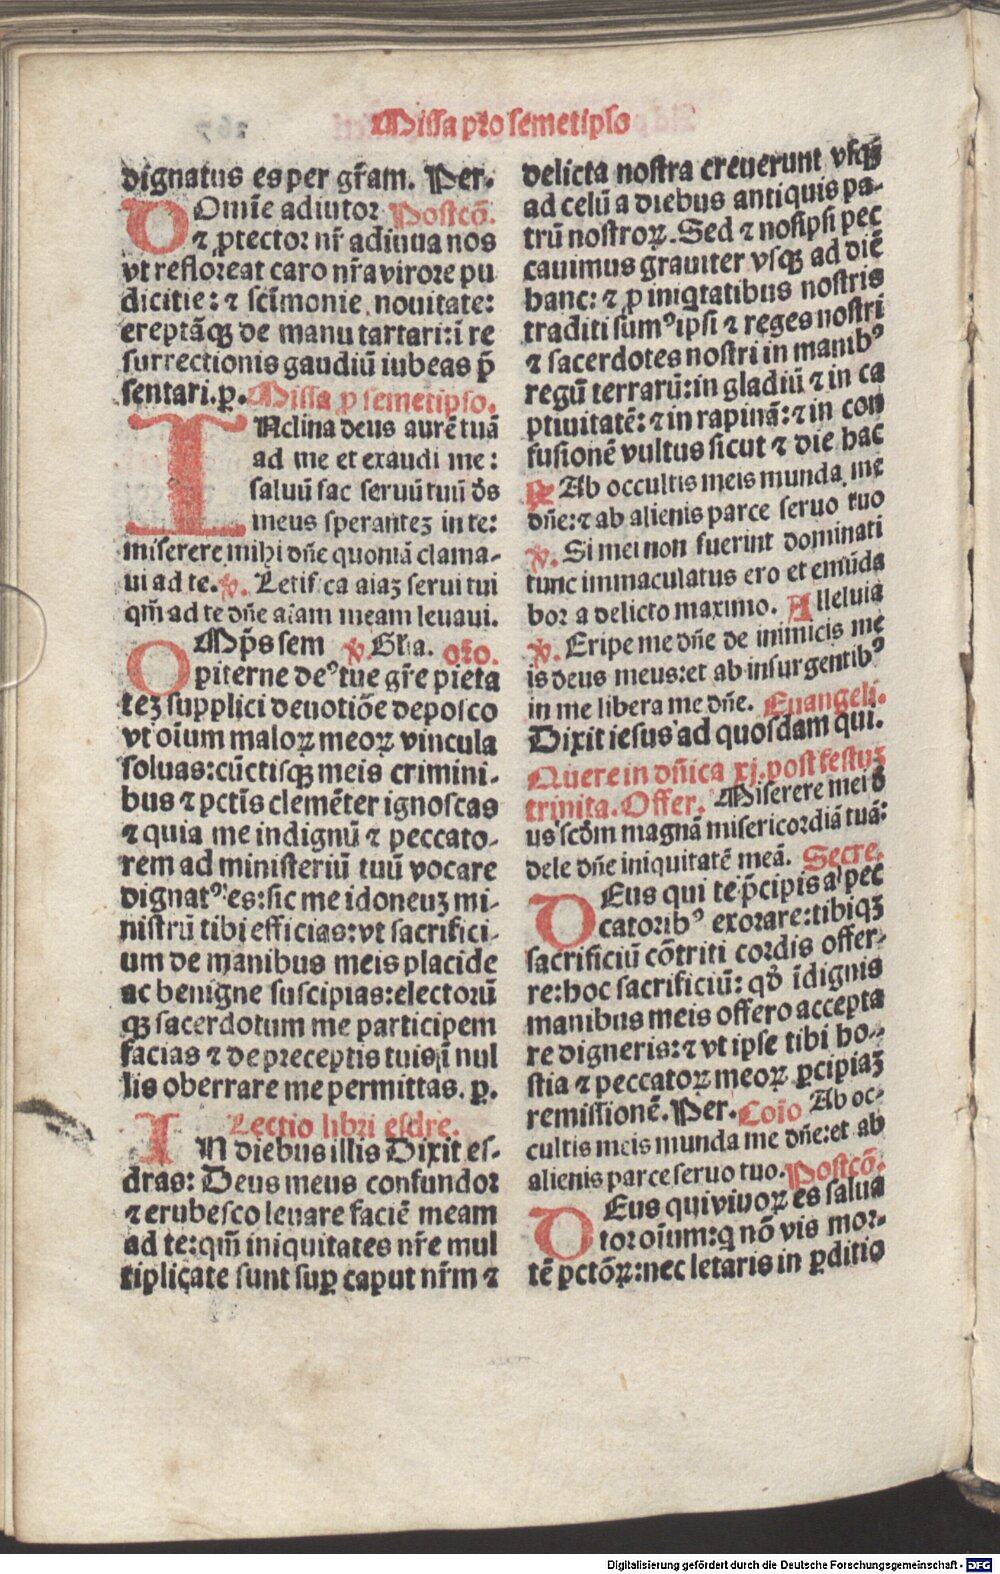 Missa pro semetipso
dignatus es per gr̄am. Per.
DOmīe adiutor Postcō.
⁊ ꝓtector nr̄ adiuua nos
vt refloreat caro nr̄a virore pu
dicitie: ⁊ sctīmonie nouitate:
ereptāqꝫ de manu tartari: ī re
surrectionis gaudiū iubeas p̄
sentari. ꝑ. Missa ꝓ semetipso.
INclina deus aurē tuā
ad me et exaudi me:
saluū fac seruū tuū d̄s
meus speranteꝫ in te:
miserere mihi dn̄e quoniā clama-
ui ad te. ℣. Letifica aīaꝫ serui tui
qm̄ ad te dn̄e aīam meam leuaui.
OMp̄s sem ℣. Gl'ia. or̄o.
piterne deꝰ tue gr̄e pieta
teꝫ supplici deuotiōe deposco
vt oīum maloꝝ meoꝝ vincula
soluas: cūctisqꝫ meis crimini-
bus ⁊ pctīs clemēter ignoscas
⁊ quia me indignū ⁊ peccato-
rem ad ministeriū tuū vocare
dignatꝰ es: sic me idoneuꝫ mi-
nistrū tibi efficias: vt sacrifici-
um de manibus meis placide
ac benigne suscipias: electorū
qꝫ sacerdotum me participem
facias ⁊ de preceptis tuis ī nul
lis oberrare me permittas. ꝑ.
Lectio libri esdre.
IN diebus illis Dixit es-
dras: Deus meus confundor
⁊ erubesco leuare faciē meam
ad te: qm̄ iniquitates nr̄e mul
tiplicate sunt suꝑ caput nr̄m ⁊
delicta nostra creuerunt vsqꝫ
ad celū a diebus antiquis pa-
trū nostroꝝ. Sed ⁊ nosipsi pec
cauimus grauiter vsqꝫ ad diē
hanc: ⁊ ꝑ iniqtatibus nostris
traditi sumꝰ ipsi ⁊ reges nostri
⁊ sacerdotes nostri in manibꝰ
regū terrarū: in gladiū ⁊ in ca
ptiuitatē: ⁊ in rapinā: ⁊ in con
fusionē vultus sicut ⁊ die hac
℟ Ab occultis meis munda me
dn̄e: ⁊ ab alienis parce seruo tuo
℣. Si mei non fuerint dominati
tunc immaculatus ero et emūda
bor a delicto maximo. Alleluia
℣. Eripe me dn̄e de inimicis me
is deus meus: et ab insurgentibꝰ
in me libera me dn̄e. Euangeli.
Dixit iesus ad quosdam qui.
Quere in dn̄ica xj. post festuꝫ
trinita. Offer. Miserere mei d̄
us scd̄m magnā misericordiā tuā:
dele dn̄e iniquitatē meā. Secre.
DEus qui te p̄cipis a pec
catoribꝰ exorare: tibiqꝫ
sacrificiū cōtriti cordis offer-
re: hoc sacrificiū: qd̄ īdignis
manibus meis offero accepta
re digneris: ⁊ vt ipse tibi ho-
stia ⁊ peccatoꝝ meoꝝ ꝑcipiaꝫ
remissionē. Per. Coīo Ab oc-
cultis meis munda me dn̄e: et ab
alienis parce seruo tuo. Postcō.
DEus qui viuoꝝ es salua
tor oīum: q nō vis mor-
tē pctōꝝ: nec letaris in ꝑditio
Digitalisierung gefördert durch die Deutsche Forschungsgemeinschaft - DFG